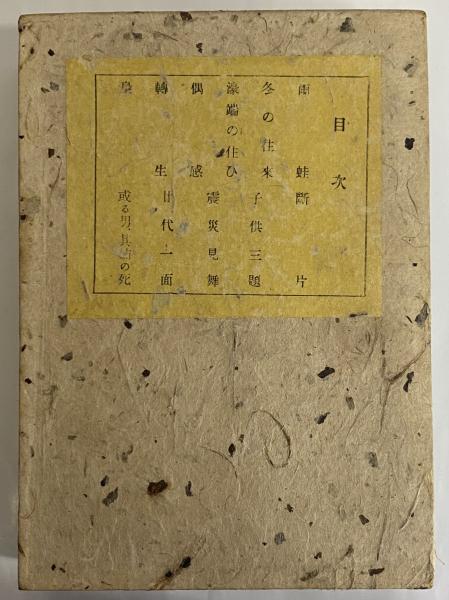 目次
雨蛙
冬の往來
濠端の住ひ
偶感
轉生
梟
斷片
子供三題
震災見舞
廿代一面
或る男、其姉の死